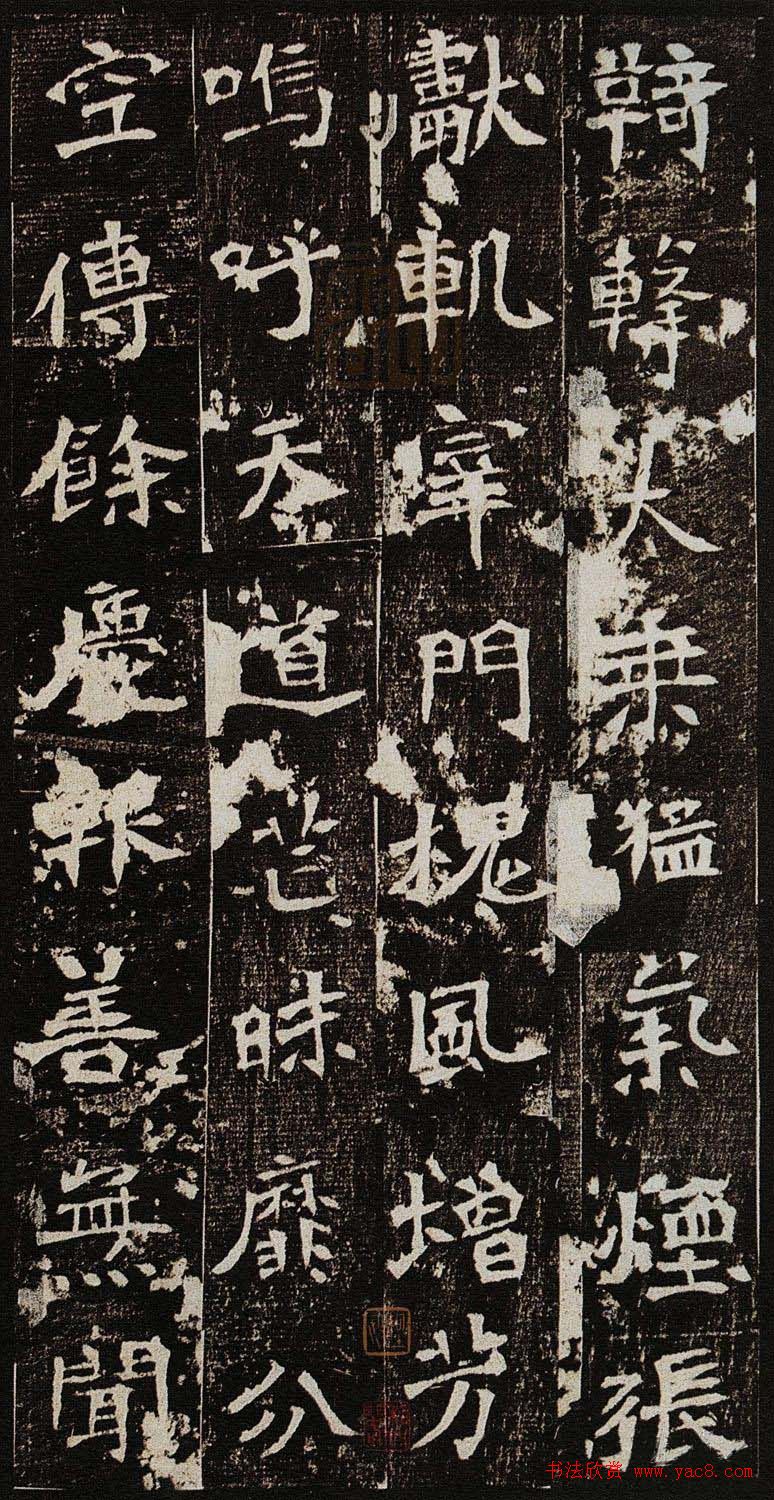 乘猛氣煙張
獻軌宰門槐風增芳
嗚呼天道芒昧靡分
空傳餘慶報善無聞
书法欣赏 www.yac8.com